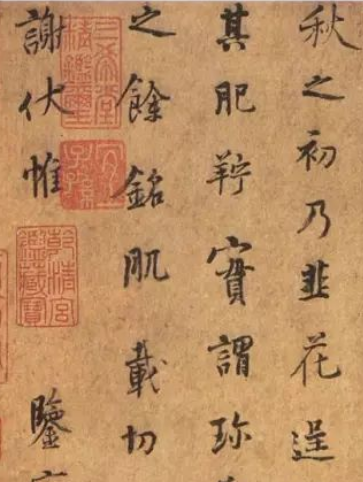 秋之初乃韭花逞
其肥羜實謂珍
之餘銘肌載切
謝伏惟 鑒
三希堂精鑑璽
宜子孫
乾清宮鑑藏寶